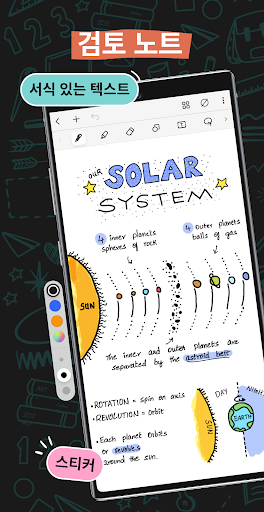 검토 노트
서식 있는 텍스트
OUR
SOLAR
SYSTEM
4 inner planets
spheres of rock
4 Outer planets
balls of gas
SUN
The inner and outer planets are
separated by the astroid belt
•ROTATION = spin on axis
•REVOLUTION = Orbit
•Each planet Orbits
or revolves
around the sun.
DAY
NIGHT
SUN
EARTH
스티커